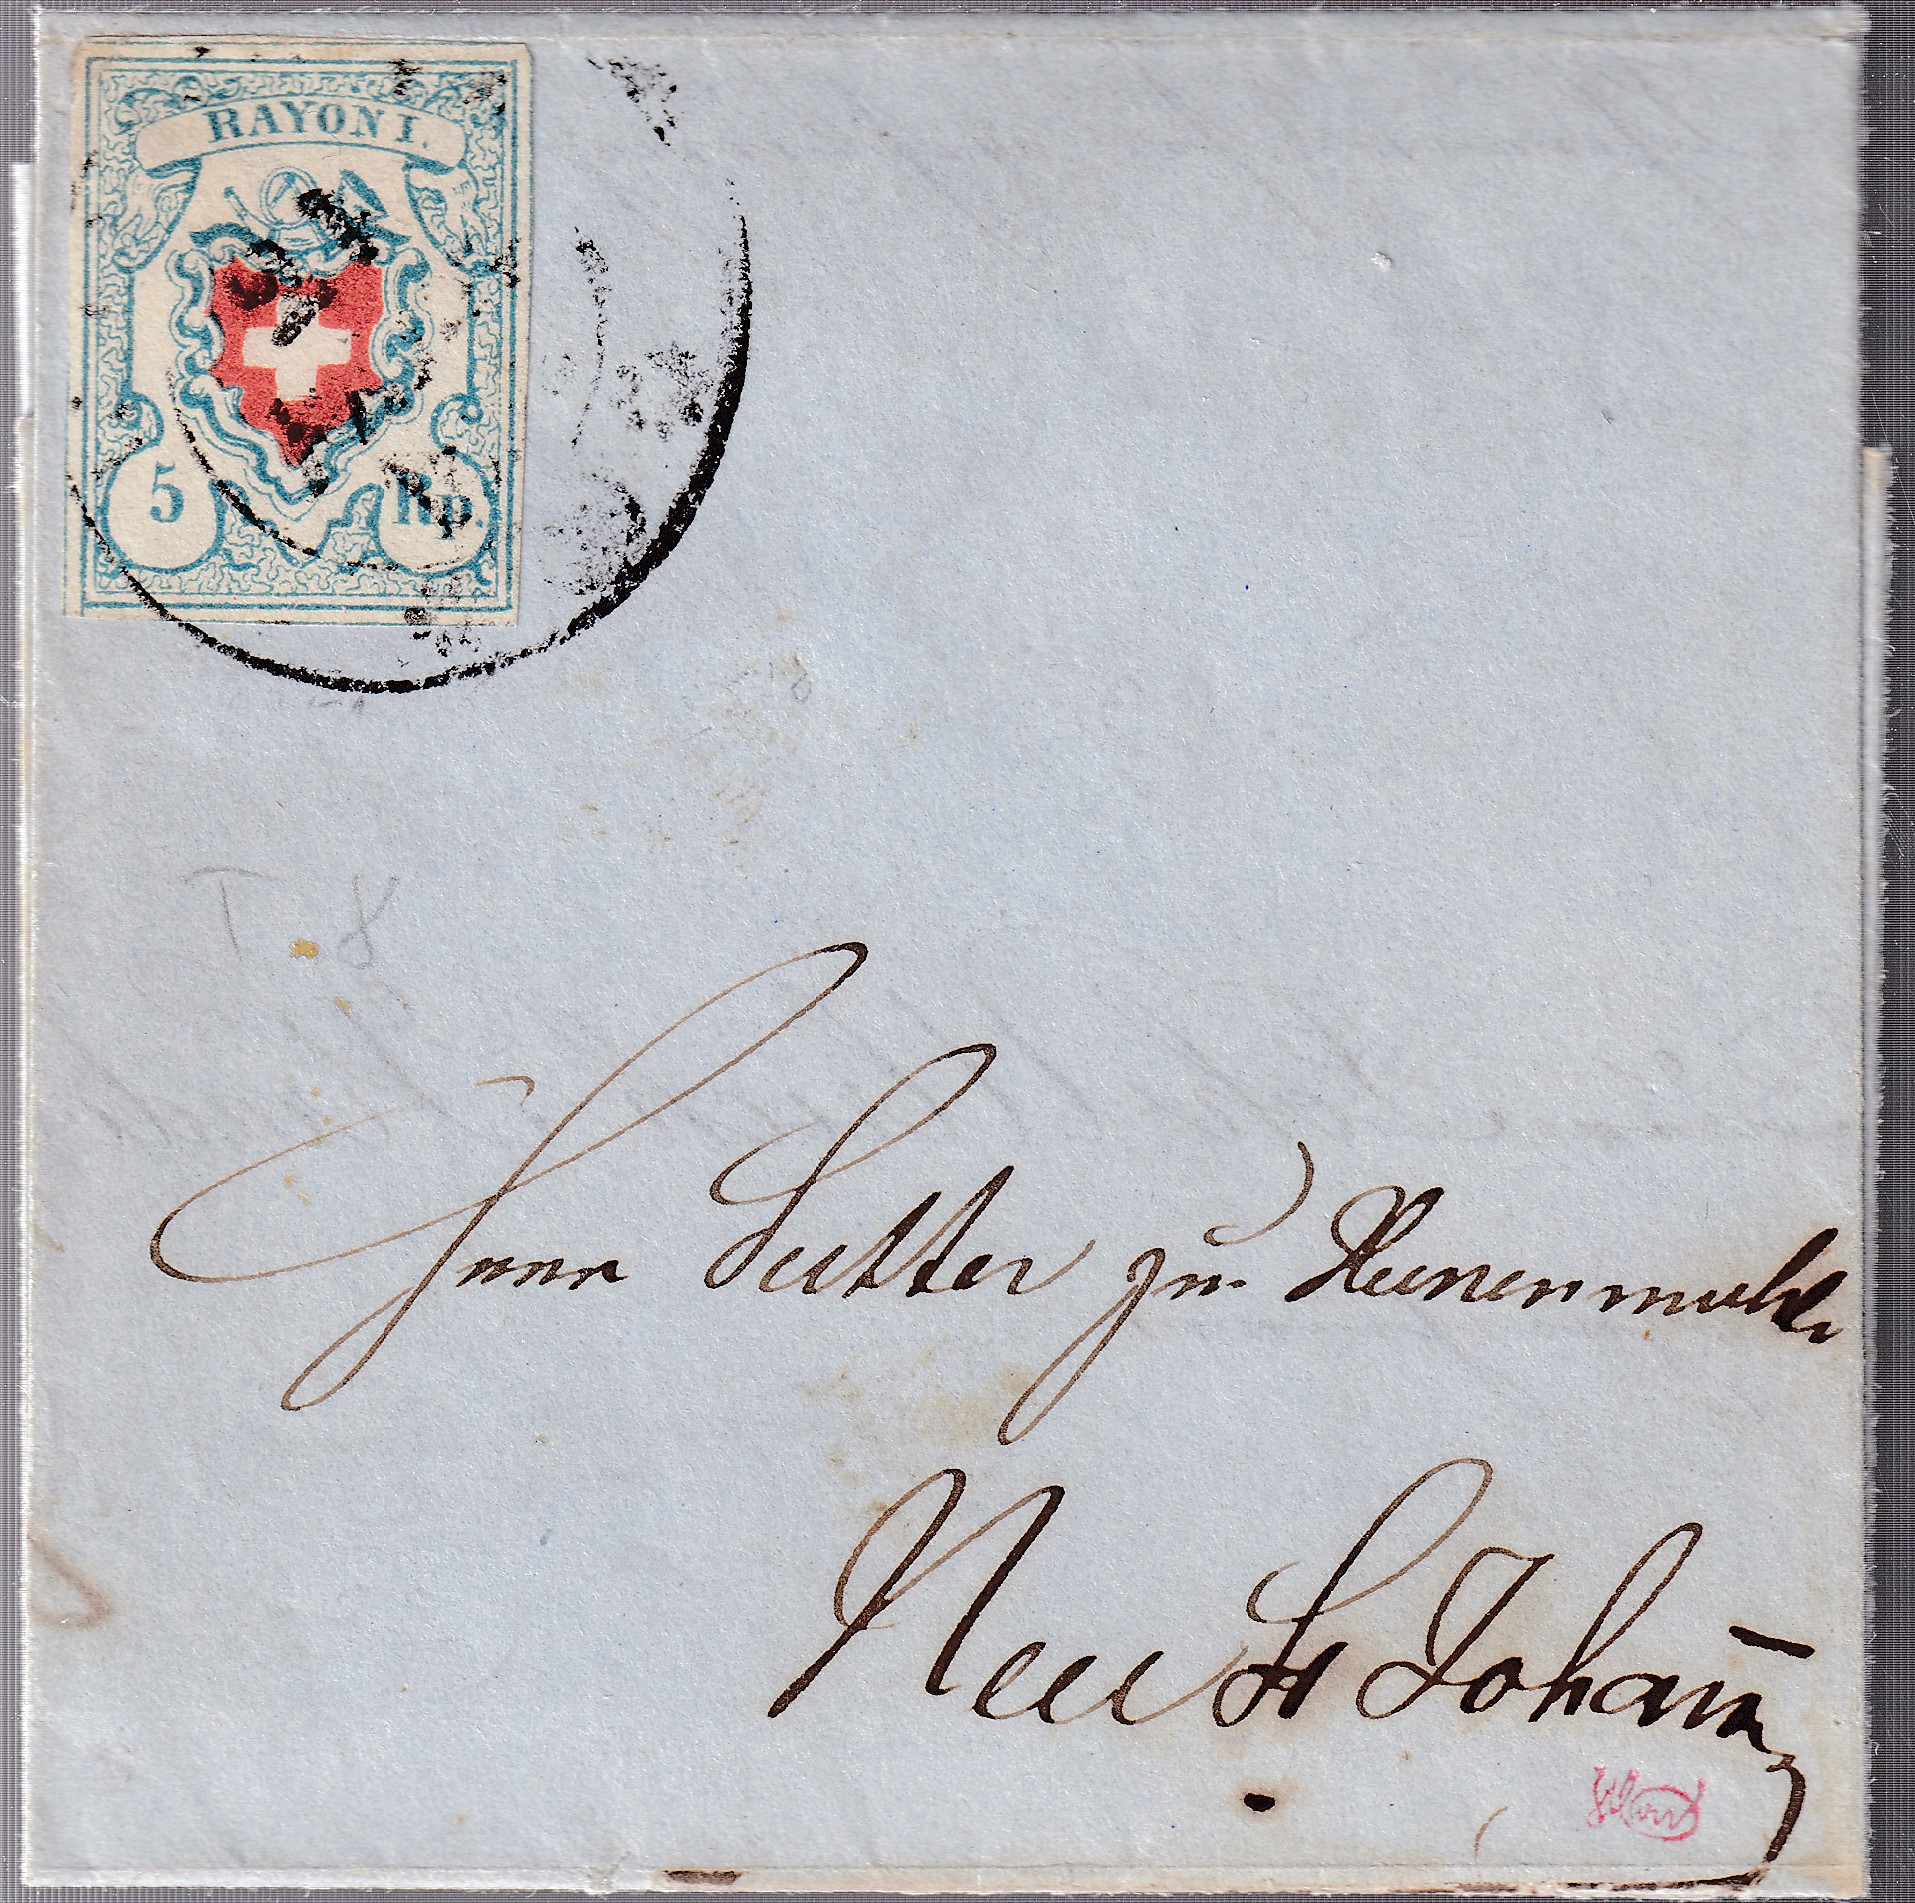 RAYON I.
5 Rp.
T. 8
Herrn Sutter zur
Neu St Johann